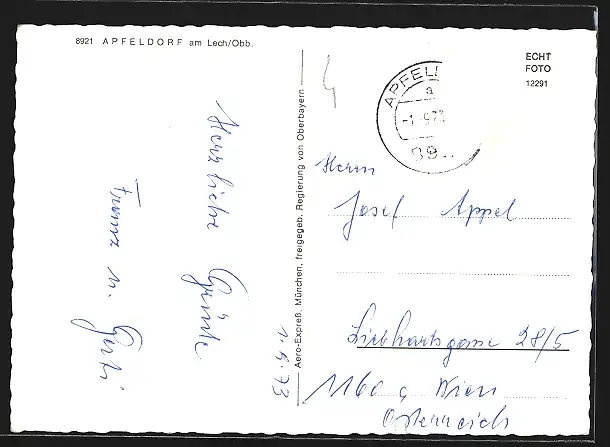 8921 APFELDORF am Lech/Obb.
ECHT
FOTO
12291
Aero-Expreß, München, freigegeb. Regierung von Oberbayern
4
APFEL
a
89
Herzliche Grüße
Franz u. Gerti
Herrn
Josef Appel
Liebhartsgasse 28/5
1160 Wien
Österreich